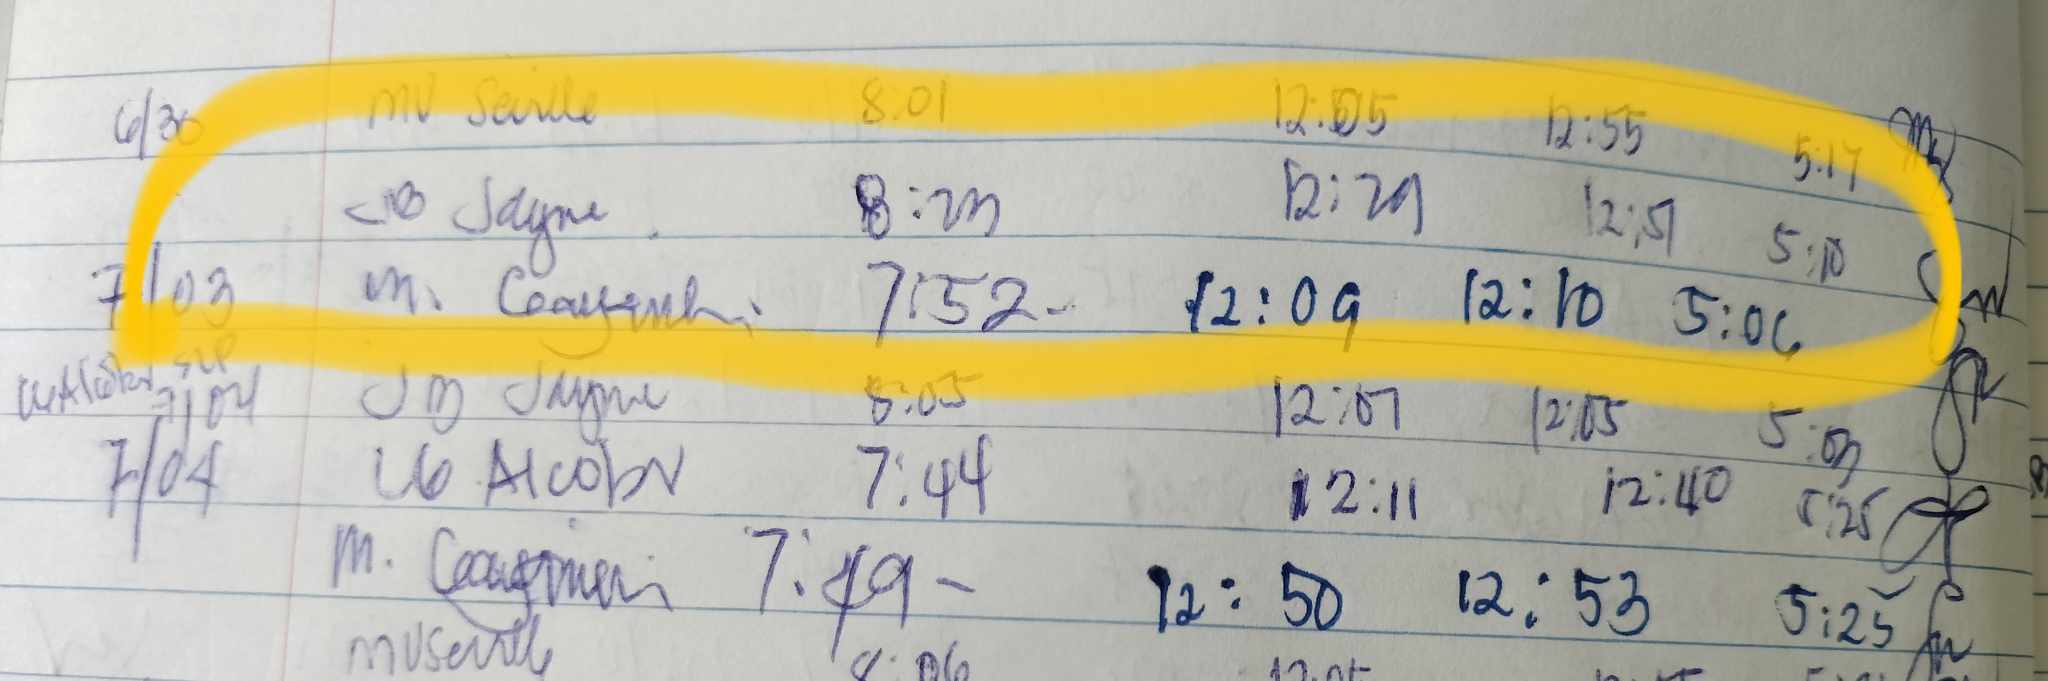 6/30 MV Seville 8:01 12:05 12:55 5:17
JB Jayne 8:23 12:29 12:51 5:10
7/03 M. 7:52 - 12:09 12:10 5:06
7/04 JB Jayne 8:05 12:07 12:05 5:03
7/04 LG Alcober 7:44 12:11 12:40 5:25
M. 7:49 - 12:50 12:53 5:25
MV Seville 8:06